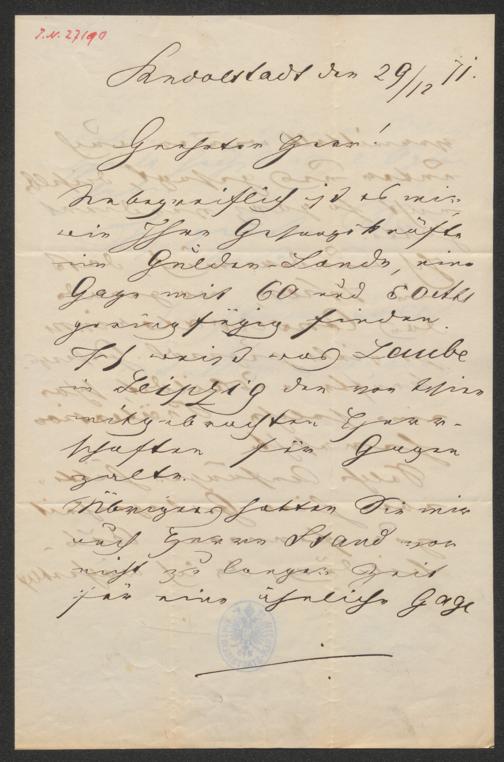 I.N. 27190
Rudolstadt den 29/12 71.
Geehrter Herr!
Unbegreiflich ist es mir
wie Ihre Gesangskräfte
im Gulden-Lande, eine
Gage mit 60 und 80 rthl
geringfügig finden.
Ich weiß was Laube
in Leipzig den von Wien
mitgebrachten Herr-
schaften für Gagen
zalte.
Übrigens hatten Sie mir
auch Herrn Stand vor
nicht zu langer Zeit
für eine ähnliche Gage